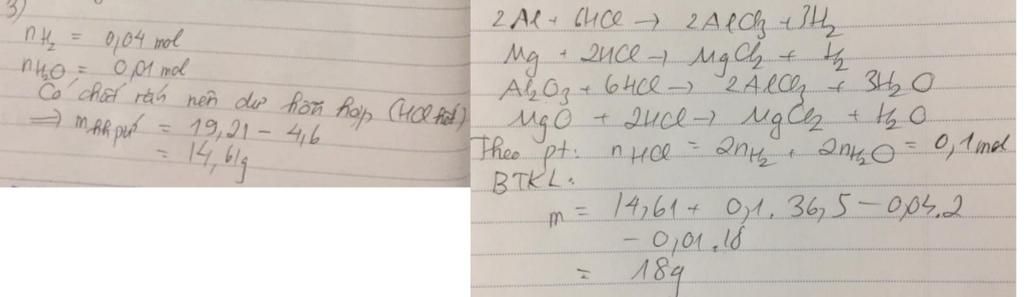 3)
nH₂ = 0,04 mol
nH₂O = 0,01 mol
Có chất rắn nên dư hỗn hợp (HCl hết)
⟹ mhh pứ = 19,21 - 4,6
= 14,61g
2Al + 6HCl → 2AlCl₃ + 3H₂
Mg + 2HCl → MgCl₂ + H₂
Al₂O₃ + 6HCl → 2AlCl₃ + 3H₂O
MgO + 2HCl → MgCl₂ + H₂O
Theo pt: nHCl = 2nH₂ + 2nH₂O = 0,1 mol
BTKL:
m = 14,61 + 0,1.36,5 - 0,04.2
- 0,01.18
= 18g